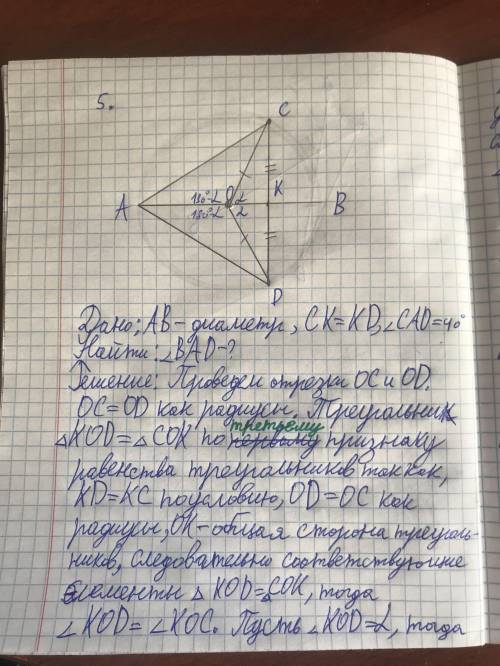 5.
C
K
A
B
O
180°-α
α
180°-α
α
D
Дано: AB - диаметр, CK=KD, ∠CAD=40°
Найти: ∠BAD-?
Решение: Проведем отрезки OC и OD.
OC=OD как радиусы. Треугольник
третьему
△KOD=△COK по первому признаку
равенства треугольников так как,
KD=KC по условию, OD=OC как
радиусы, OK-общая сторона треуголь-
ников, следовательно соответствующие
элементы △KOD=△COK, тогда
∠KOD=∠KOC. Пусть ∠KOD=α, тогда